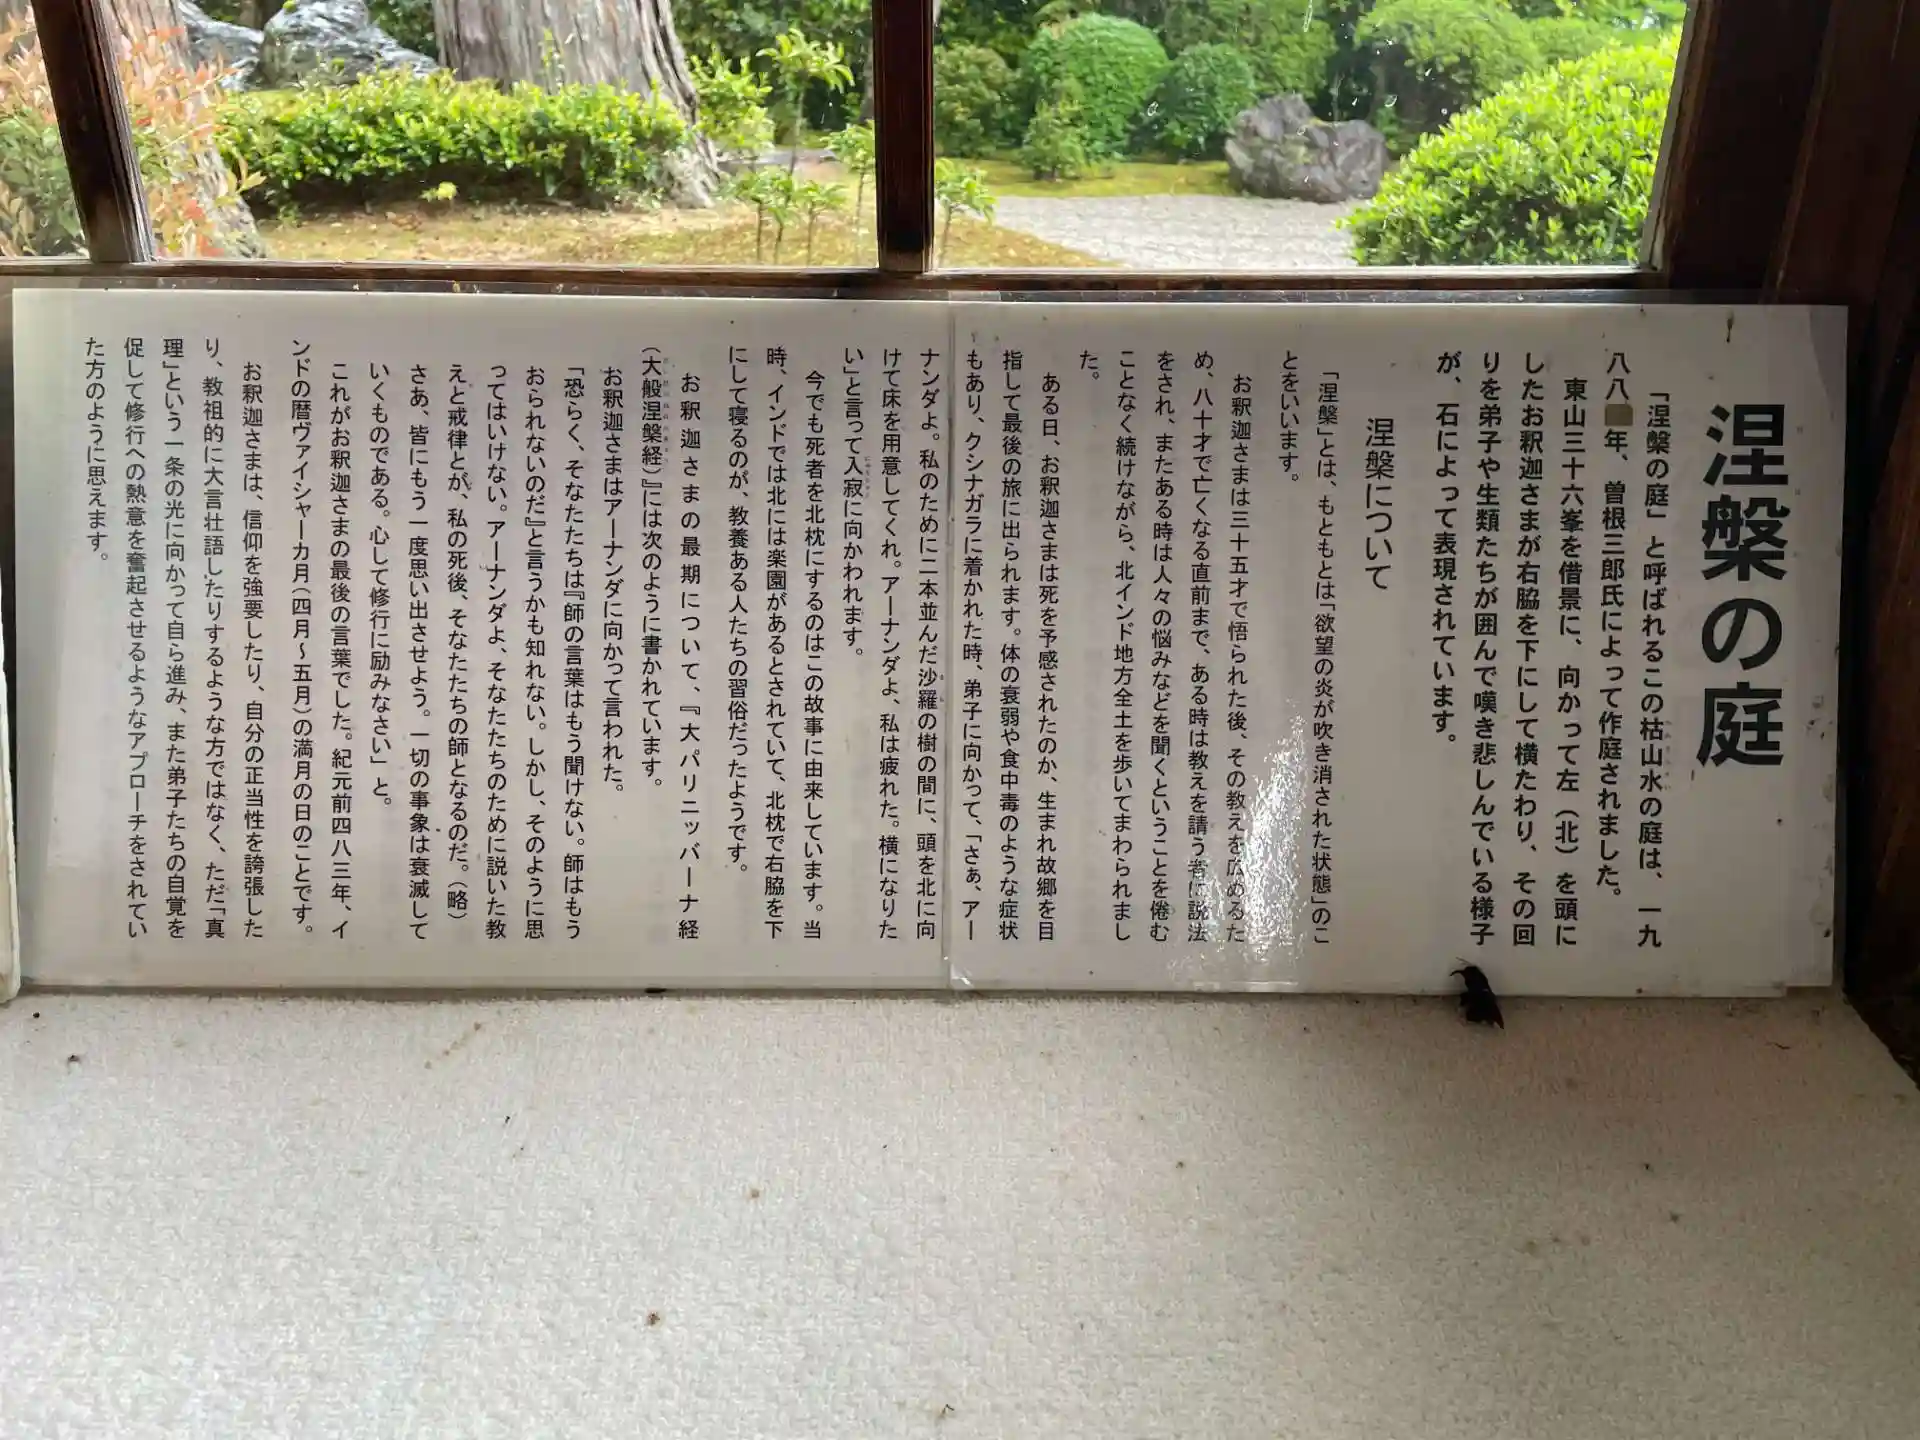 涅槃の庭
「涅槃の庭」と呼ばれるこの枯山水の庭は、一九
八八 年、曽根三郎氏によって作庭されました。
東山三十六峯を借景に、向かって左（北）を頭に
したお釈迦さまが右脇を下にして横たわり、その回
りを弟子や生類たちが囲んで嘆き悲しんでいる様子
が、石によって表現されています。
涅槃について
「涅槃」とは、もともとは「欲望の炎が吹き消された状態」のこ
とをいいます。
お釈迦さまは三十五才で悟られた後、その教えを広めるた
め、八十才で亡くなる直前まで、ある時は教えを請う者に説法
をされ、またある時は人々の悩みなどを聞くということを倦む
ことなく続けながら、北インド地方全土を歩いてまわられまし
た。
ある日、お釈迦さまは死を予感されたのか、生まれ故郷を目
指して最後の旅に出られます。体の衰弱や食中毒のような症状
もあり、クシナガラに着かれた時、弟子に向かって、「さぁ、アー
ナンダよ。私のために二本並んだ沙羅の樹の間に、頭を北に向
けて床を用意してくれ。アーナンダよ、私は疲れた。横になりた
い」と言って入寂に向かわれます。
今でも死者を北枕にするのはこの故事に由来しています。当
時、インドでは北には楽園があるとされていて、北枕で右脇を下
にして寝るのが、教養ある人たちの習俗だったようです。
お釈迦さまの最期について、『大パリニッバーナ経
（大般涅槃経）』には次のように書かれています。
お釈迦さまはアーナンダに向かって言われた。
「恐らく、そなたたちは『師の言葉はもう聞けない。師はもう
おられないのだ』と言うかも知れない。しかし、そのように思
ってはいけない。アーナンダよ、そなたたちのために説いた教
えと戒律とが、私の死後、そなたたちの師となるのだ。（略）
さあ、皆にもう一度思い出させよう。一切の事象は衰滅して
いくものである。心して修行に励みなさい」と。
これがお釈迦さまの最後の言葉でした。紀元前四八三年、イ
ンドの暦ヴァイシャーカ月（四月～五月）の満月の日のことです。
お釈迦さまは、信仰を強要したり、自分の正当性を誇張した
り、教祖的に大言壮語したりするような方ではなく、ただ「真
理」という一条の光に向かって自ら進み、また弟子たちの自覚を
促して修行への熱意を奮起させるようなアプローチをされてい
た方のように思えます。